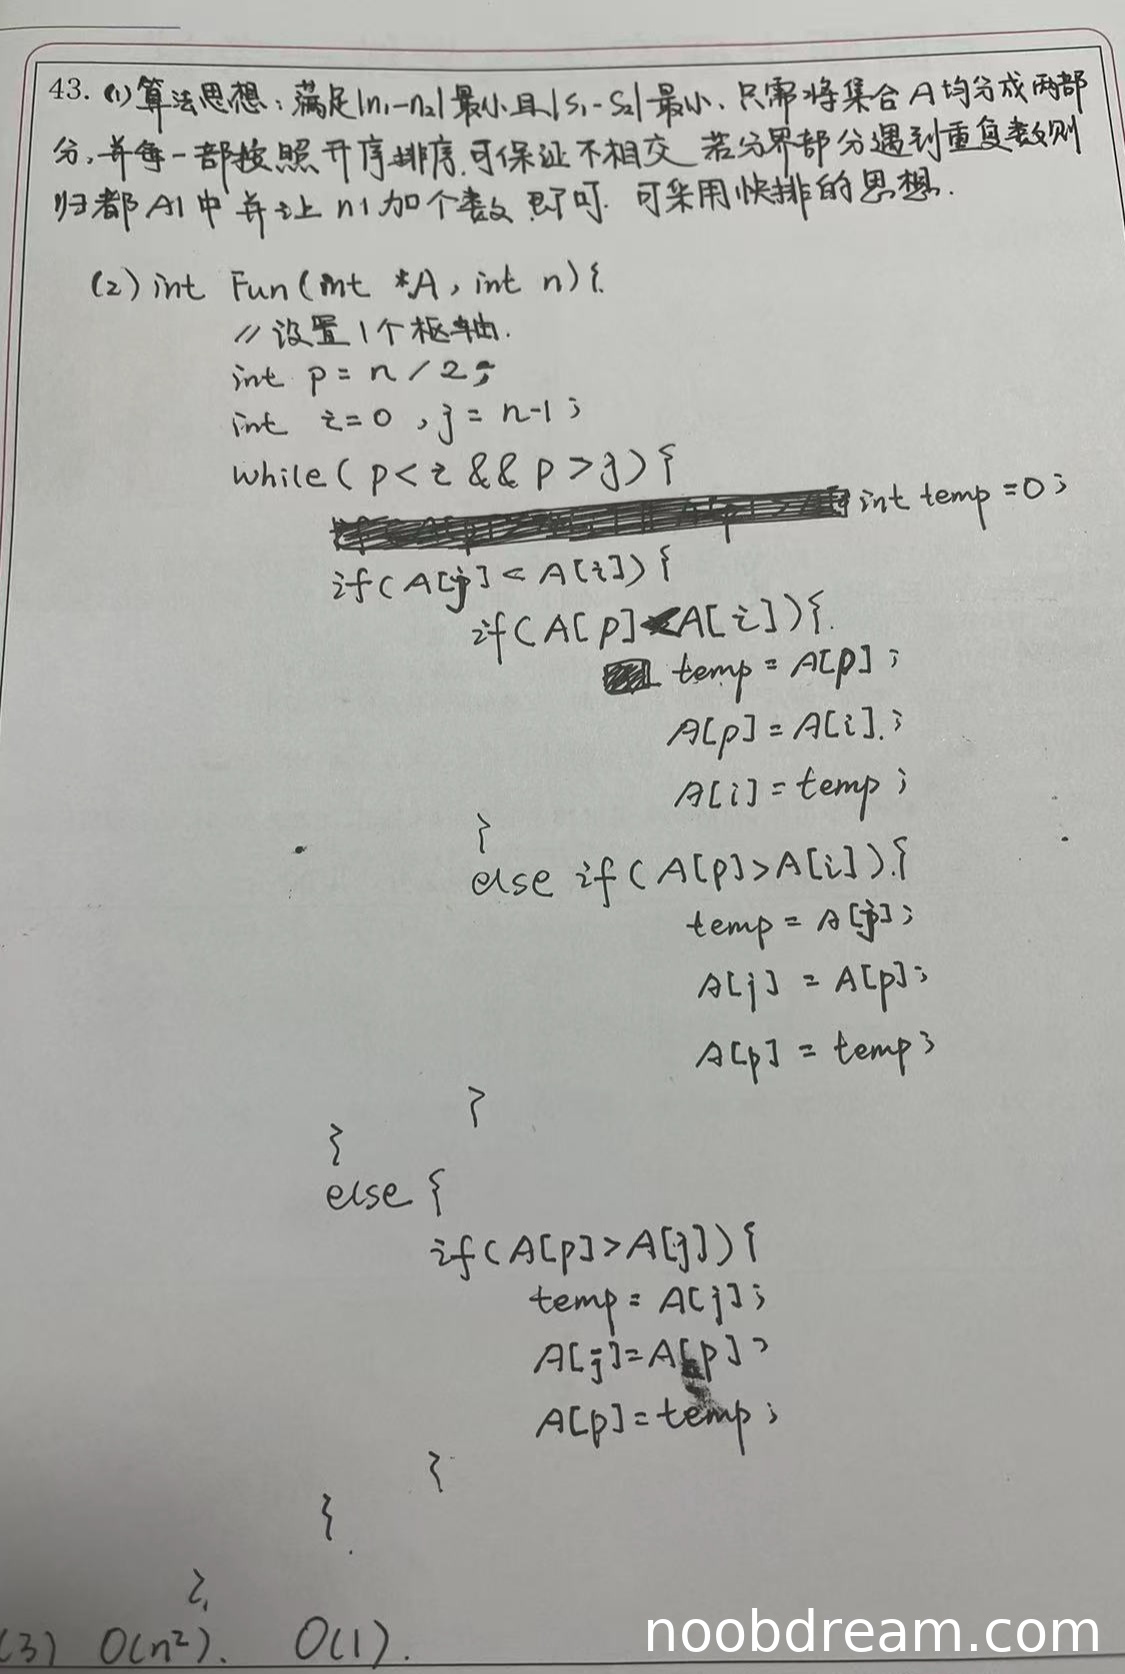 43. (1) 算法思想：满足|n1-n2|最小且|s1-s2|最小，只需将集合A均分成两部
分，并每一部按照升序排序，可保证不相交，若分界部分遇到重复数则
归都A1中并让n1加个数即可. 可采用快排的思想.
(2) int Fun(int *A, int n){
//设置1个枢轴.
int p = n / 2;
int i=0, j = n-1;
while( p<i && p>j){
int temp =0;
if(A[j] < A[i]){
if(A[p]<A[i]){
temp = A[p];
A[p] = A[i];
A[i] = temp;
}
else if(A[p]>A[i]){
temp = A[j];
A[j] = A[p];
A[p] = temp;
}
}
else {
if(A[p]>A[j]){
temp = A[j];
A[j]=A[p];
A[p]=temp;
}
}
}
(3) O(n²). O(1).
noobdream.com